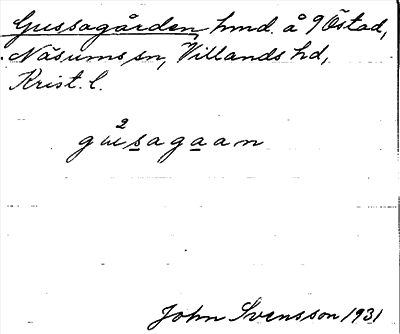 Gussagården hmd. å 9 Östad,
Näsums sn, Villands hd,
Krist. l.
2
gusagaan
John Svensson 1931